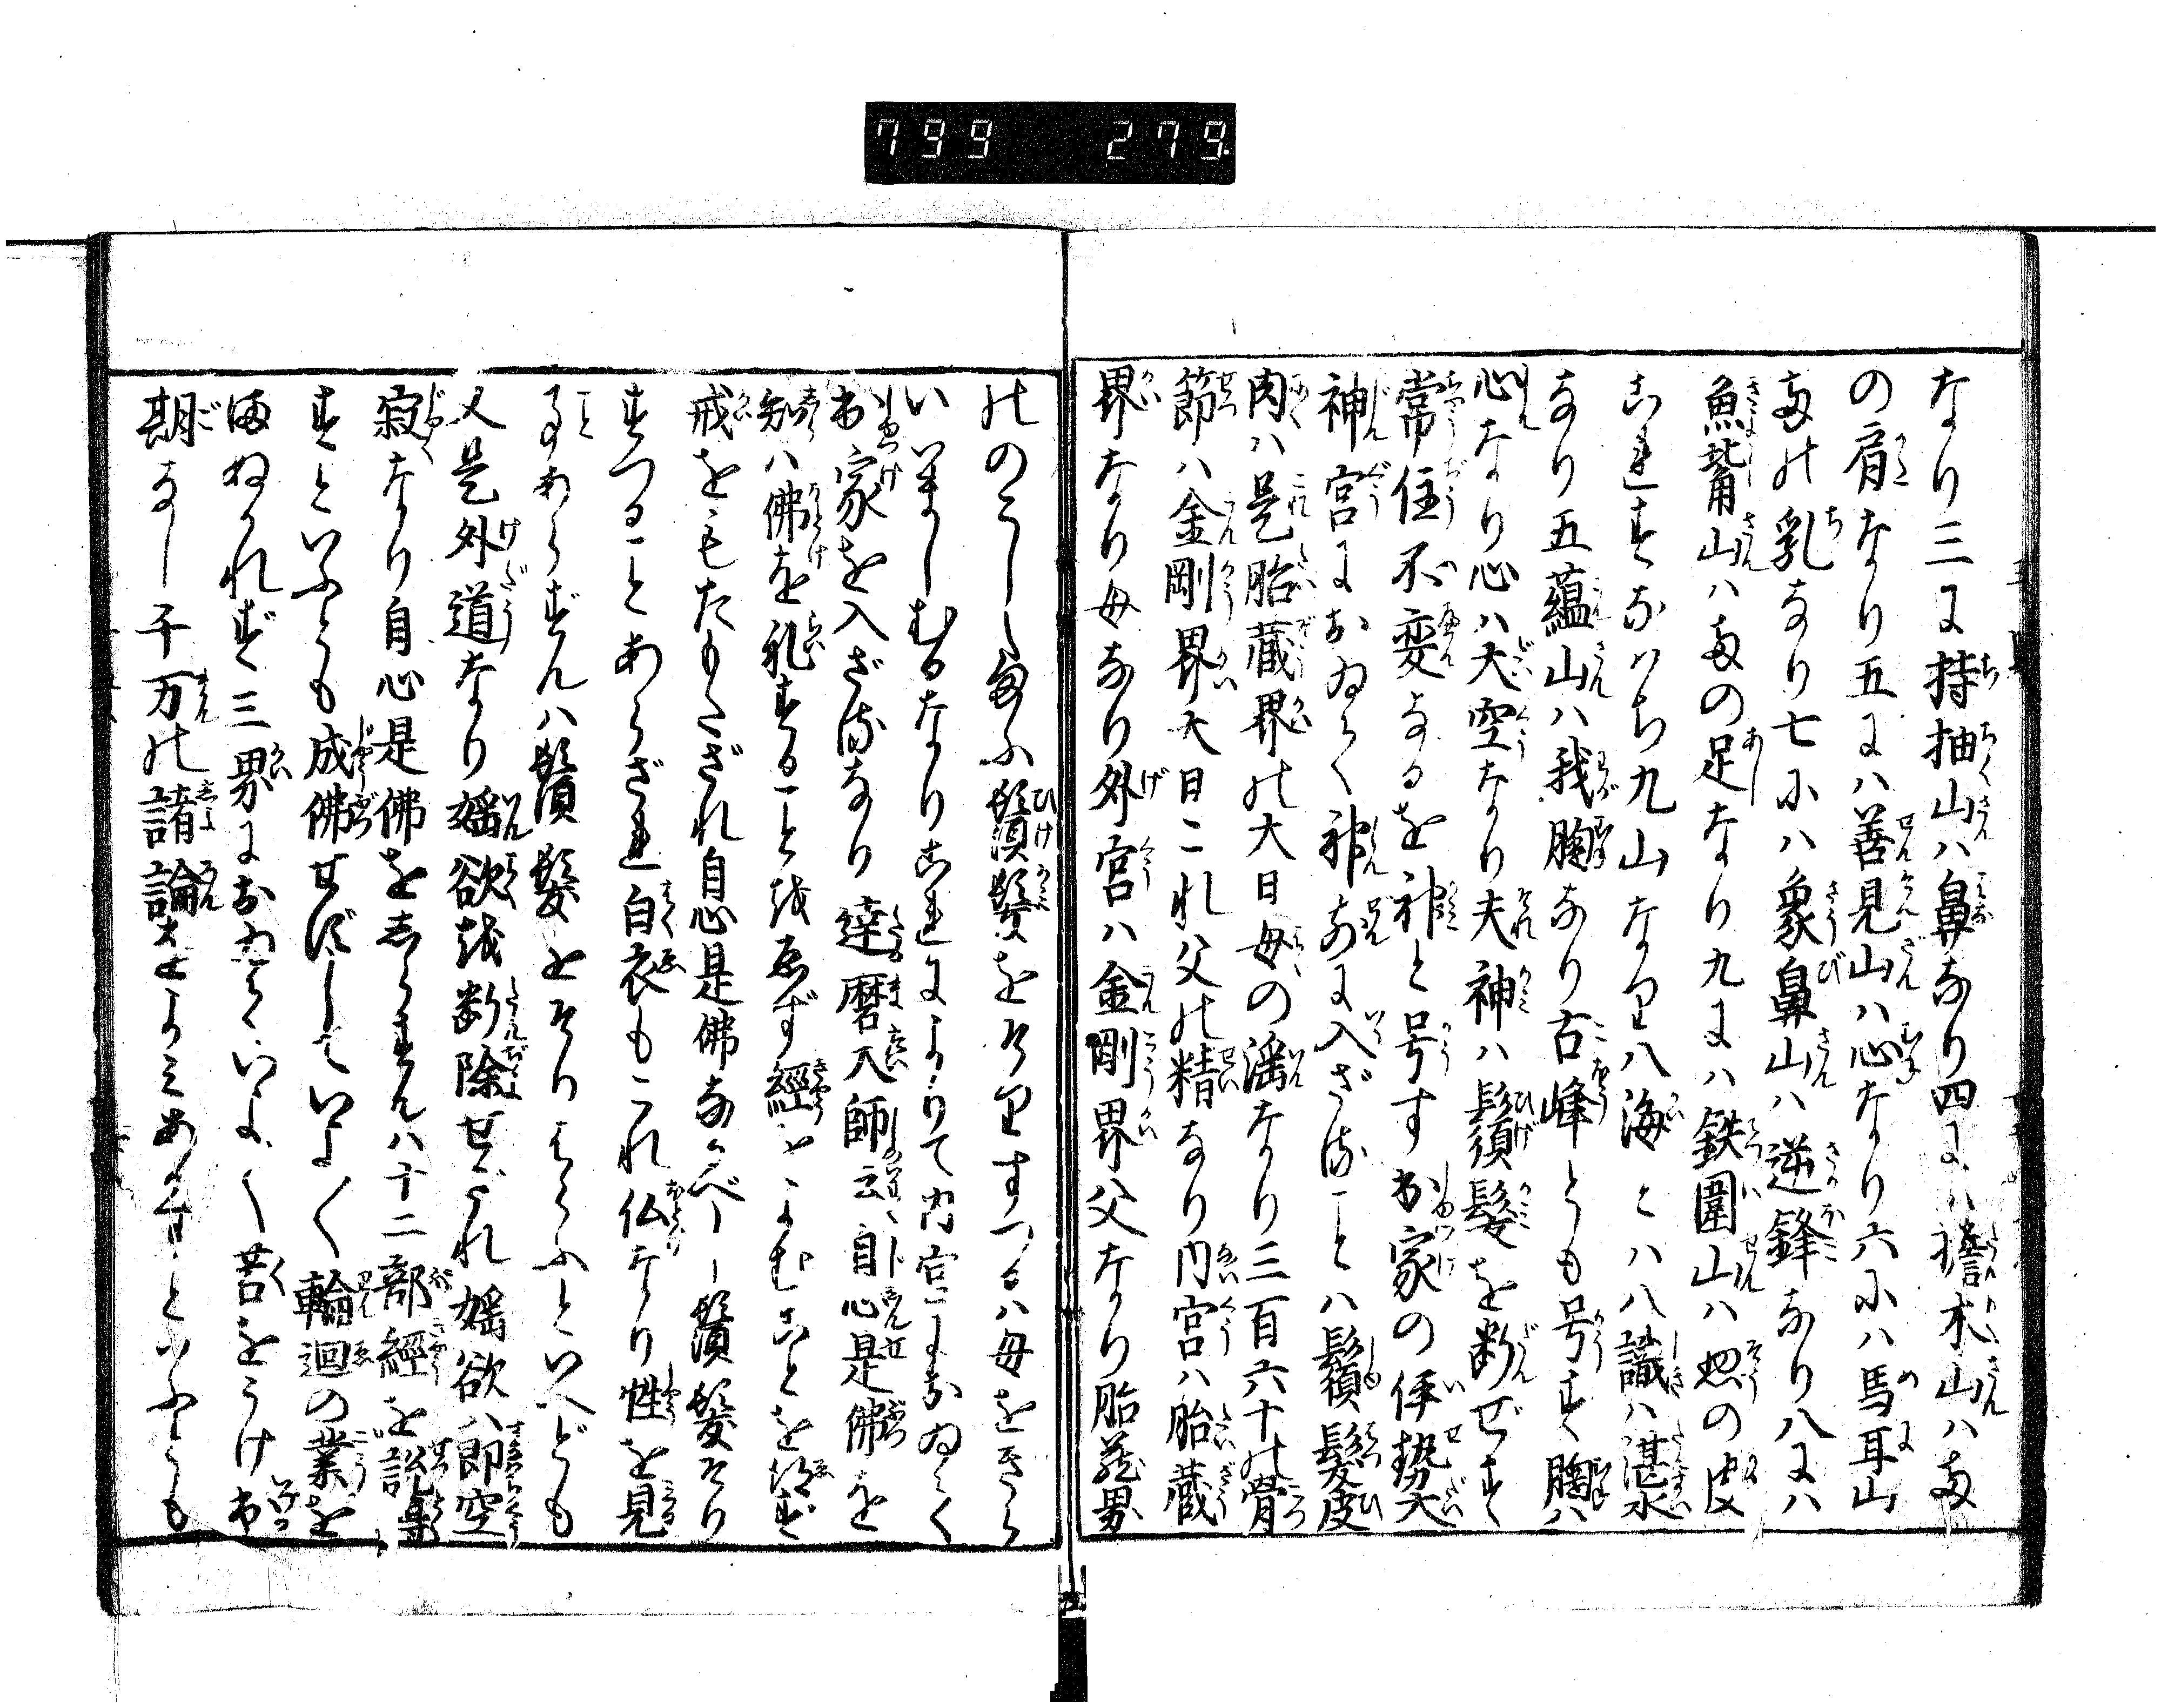 799 279
なり三に持抽山ハ鼻なり四にハ檐木山ハ
の肩なり五にハ善見山ハ心なり六にハ馬耳山
乳なり七にハ象鼻山ハ逆鋒なり八にハ
魚觜山ハ の足なり九にハ鉄圍山ハ惣の皮
これすなハち九山なり八海とハ八識ハ湛水
なり五蘊山ハ我胸なり古峰とも号す胸ハ
心なり心ハ大空なり夫神ハ鬚髪を断ぜず
常住不変なるを神と号す出家の伊勢大
神宮におゐて神前に入ざることハ鬚髪皮
肉ハ是胎蔵界の大日母の滛なり三百六十の骨
節ハ金剛界大日これ父の精なり内宮ハ胎蔵
界なり母なり外宮ハ金剛界父なり胎蔵界
のこし 鬚髪をそりすつるハ母をきら
いましむるなりこれによりて内宮におゐて
出家を入ざるなり達磨大師云自心是佛を
知ハ佛を礼することをゑず經をよむことを得ず
戒をもたもたざれ自心是佛なるべし鬚髪そり
すつることあらざれ白衣もこれ仏なり性を見
事あらずんハ鬚髪をそりはらふといへども
又是外道なり婬欲を断除せざれ婬欲ハ即空
寂なり自心是佛をしらずんハ十二部經を説
すといふとも成佛せずしていよ〱輪迴の業を
まぬかれず三界におゐていよ〱苦をうけ出
期なし千万の諸論をよミあ といふとも